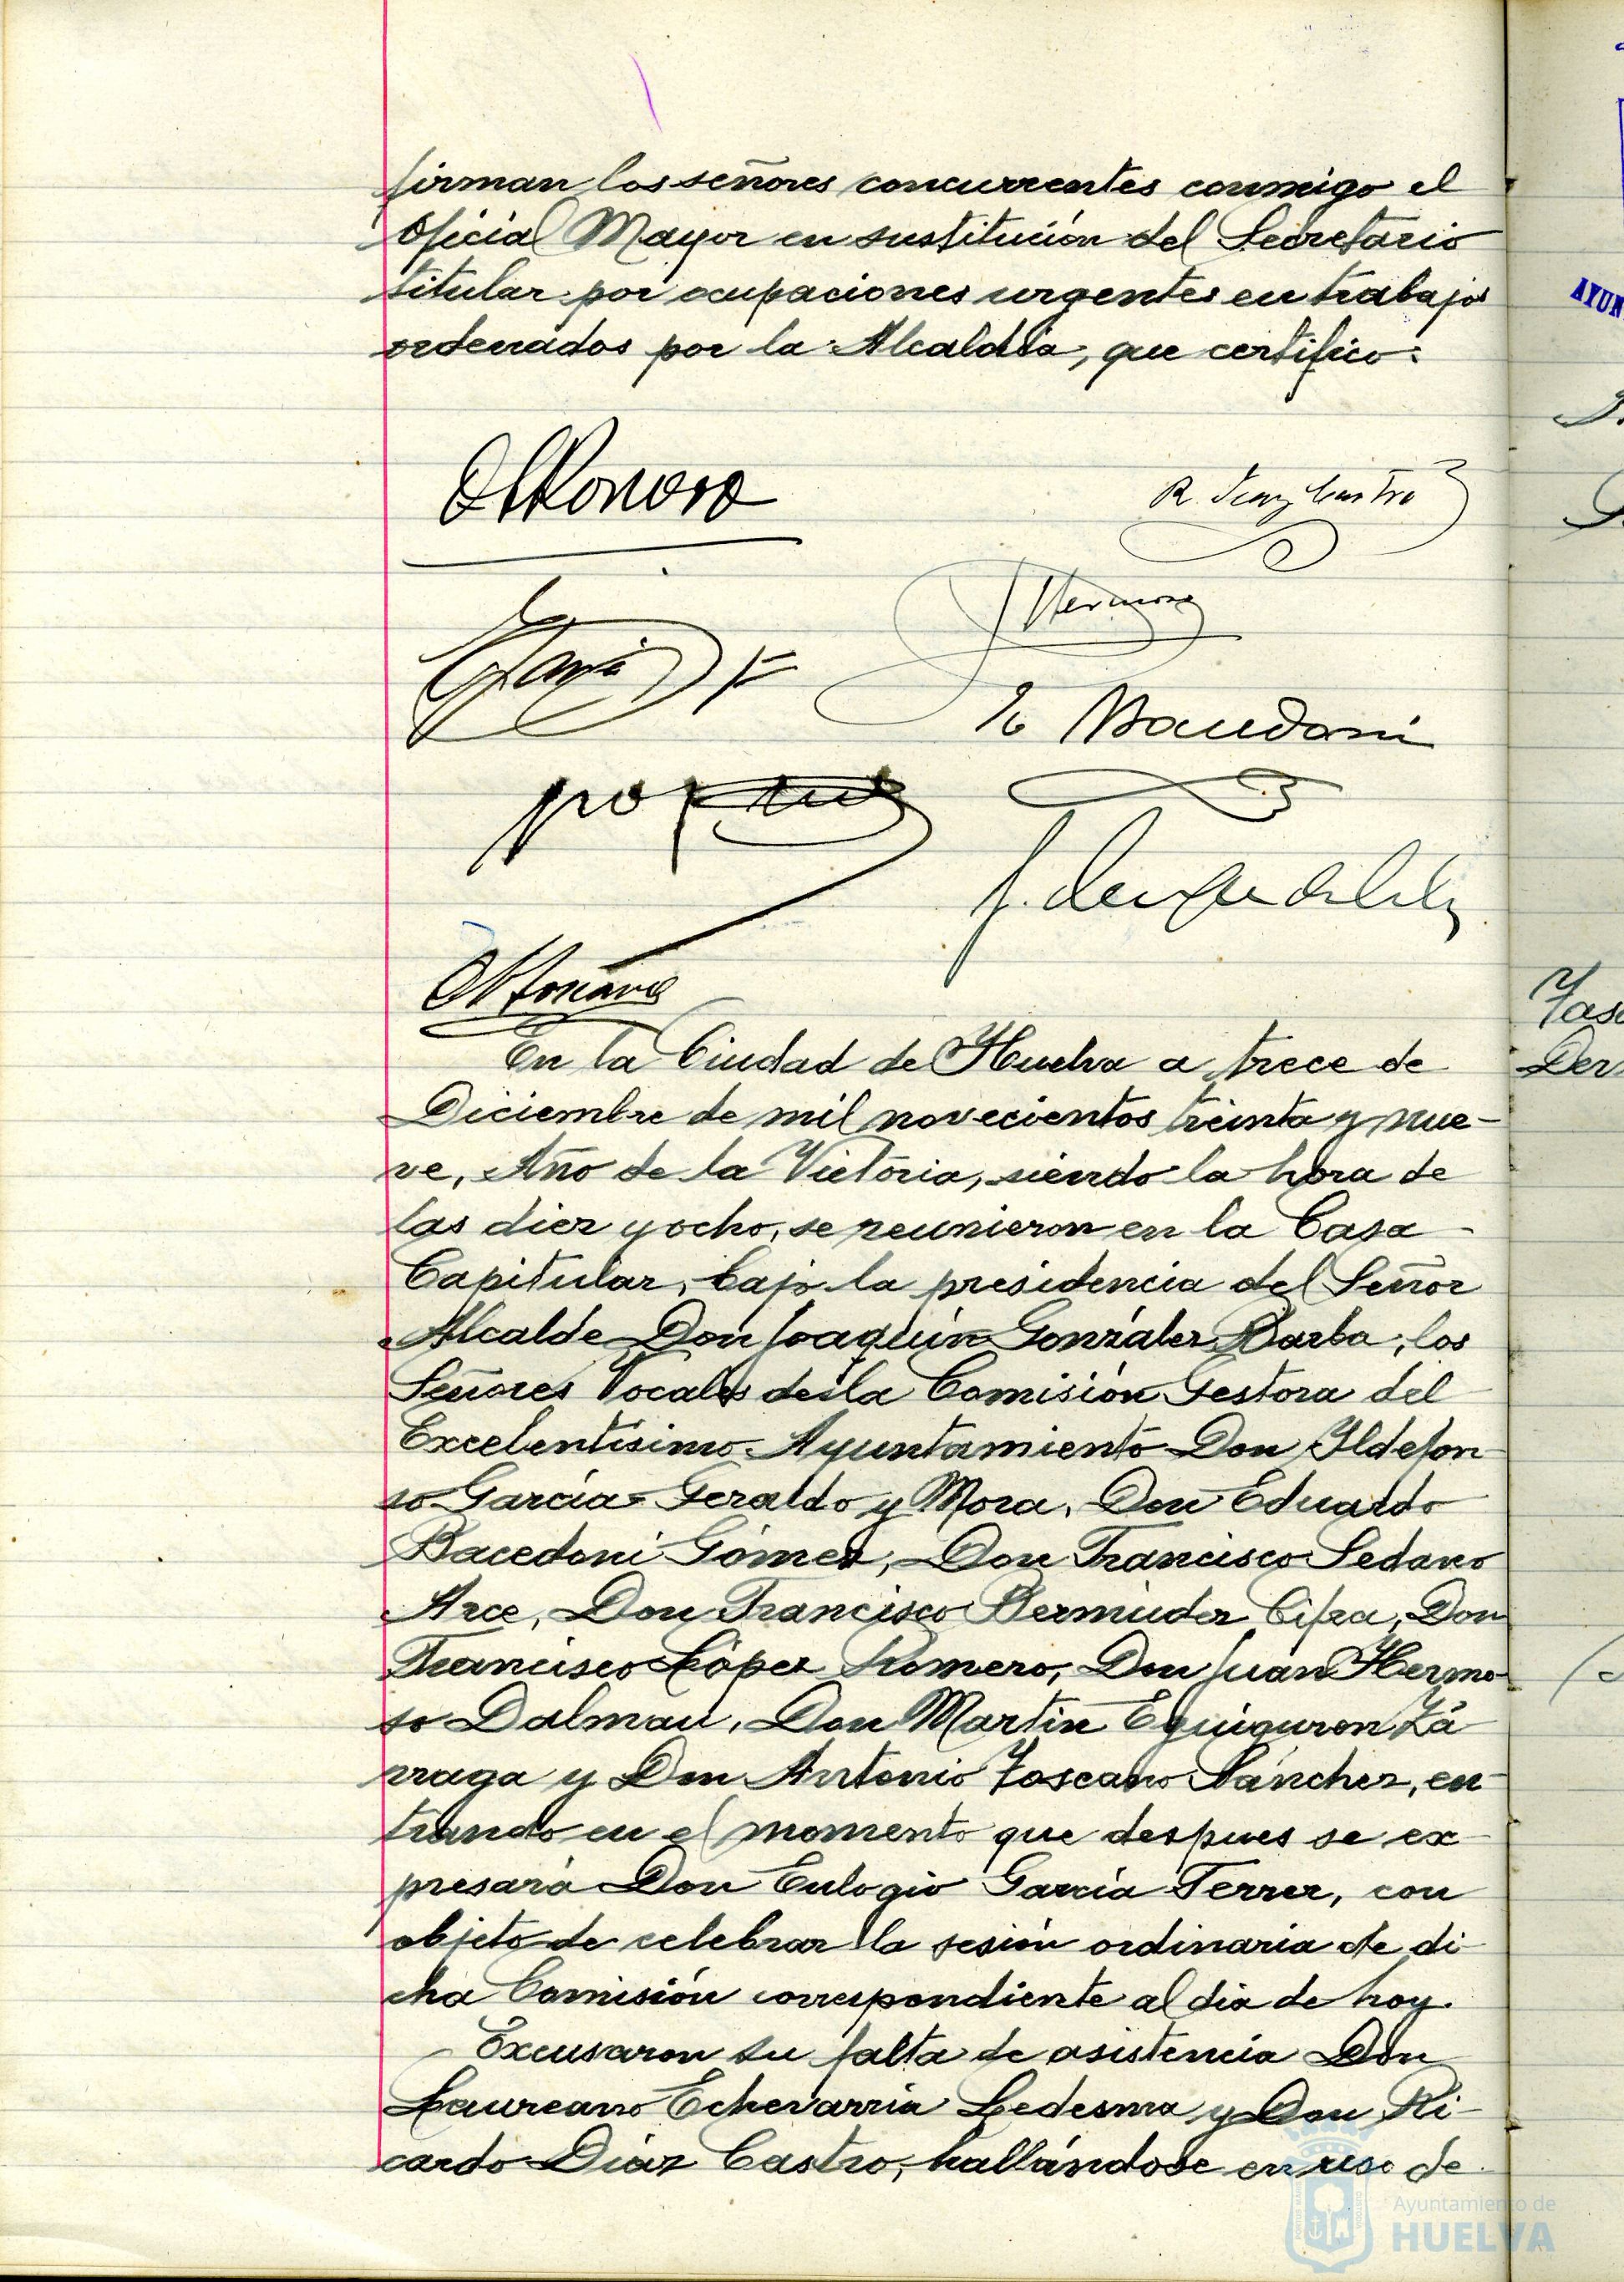 firman los señores concurrentes conmigo el
Oficial Mayor en sustitución del Secretario
titular por ocupaciones urgentes en trabajos
ordenados por la Alcaldía, que certifico:
R. Diaz Castro
J Hermoso
AYUN
En la Ciudad de Huelva a trece de
Diciembre de mil novecientos treinta y nue-
ve, Año de la Victoria, siendo la hora de
las diez y ocho, se reunieron en la Casa
Capitular, bajo la presidencia del Señor
Alcalde Don Joaquín González Barba, los
Señores Vocales de la Comisión Gestora del
Excelentísimo Ayuntamiento Don Ildefon
so García-Geraldo y Mora, Don Eduardo
Bacedoni Gómez, Don Francisco Sedano
Arce, Don Francisco Bermudez Cifra, Don
Francisco López Romero, Don Juan Hermo-
so Dalmau, Don Martín Eguiguren Zá
rraga y Don Antonio Toscano Sánchez, en
trando en el momento que despues se ex
presará Don Eulogio García Ferrer, con
objeto de celebrar la sesión ordinaria de di
cha Comisión correspondiente al dia de hoy.
Excusaron su falta de asistencia Don
Laureano Echevarría Ledesma y Don Ri-
cardo Díaz Castro, hallándose en uso de
Ayuntamiento de
HUELVA